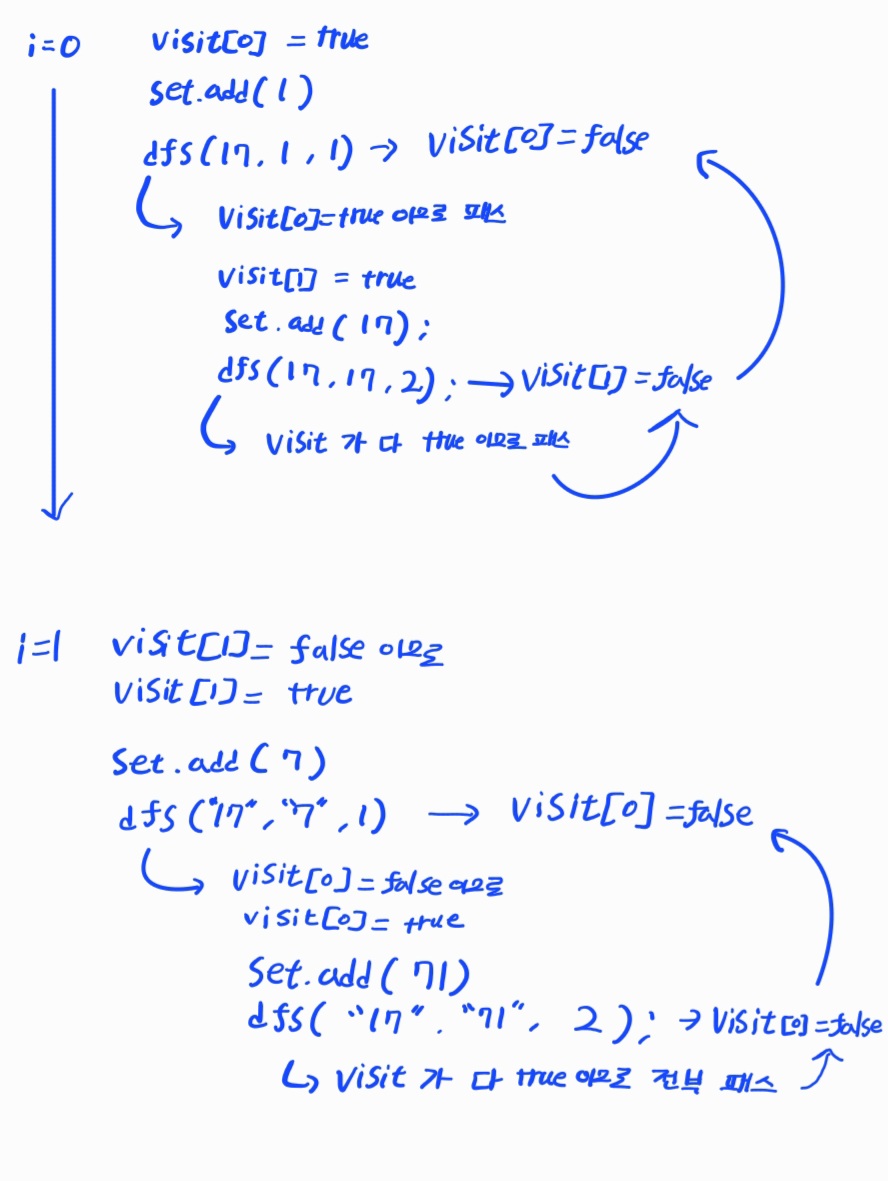 i=0 visit[0] = true
set.add(1)
dfs(17, 1, 1) → visit[0]=false
visit[0]=true 이므로 패스
visit[1] = true
set.add(17);
dfs(17, 17, 2); → visit[1]=false
visit 가 다 true 이므로 패스
i=1 visit[1]= false 이므로
visit[1]= true
set.add(7)
dfs("17", "7", 1) → visit[0]=false
visit[0]=false 이므로
visit[0]= true
set.add(71)
dfs("17". "71", 2); → visit[0]=false
visit 가 다 true 이므로 전부 패스